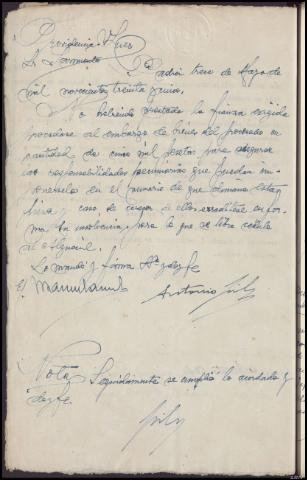 Providencia Juez
Sr. Sarmiento
Padrón trece de Mayo de
mil novecientos treinta y uno.
No habiendo prestado la fianza exigida
procedase al embargo de bienes del procesado en
cantidad de cinco mil pesetas para asegurar
las responsabilidades pecuniarias que puedan im-
ponersele en el sumario de que dimana esta
pieza y caso de carecer de ellos acreditese en for-
ma su insolvencia, para lo que se libre cedula
al Alguacil.
Lo mandó y firma Sª doy fe
Antonio
Nota Seguidamente se cumplió lo acordado y
doy fe.